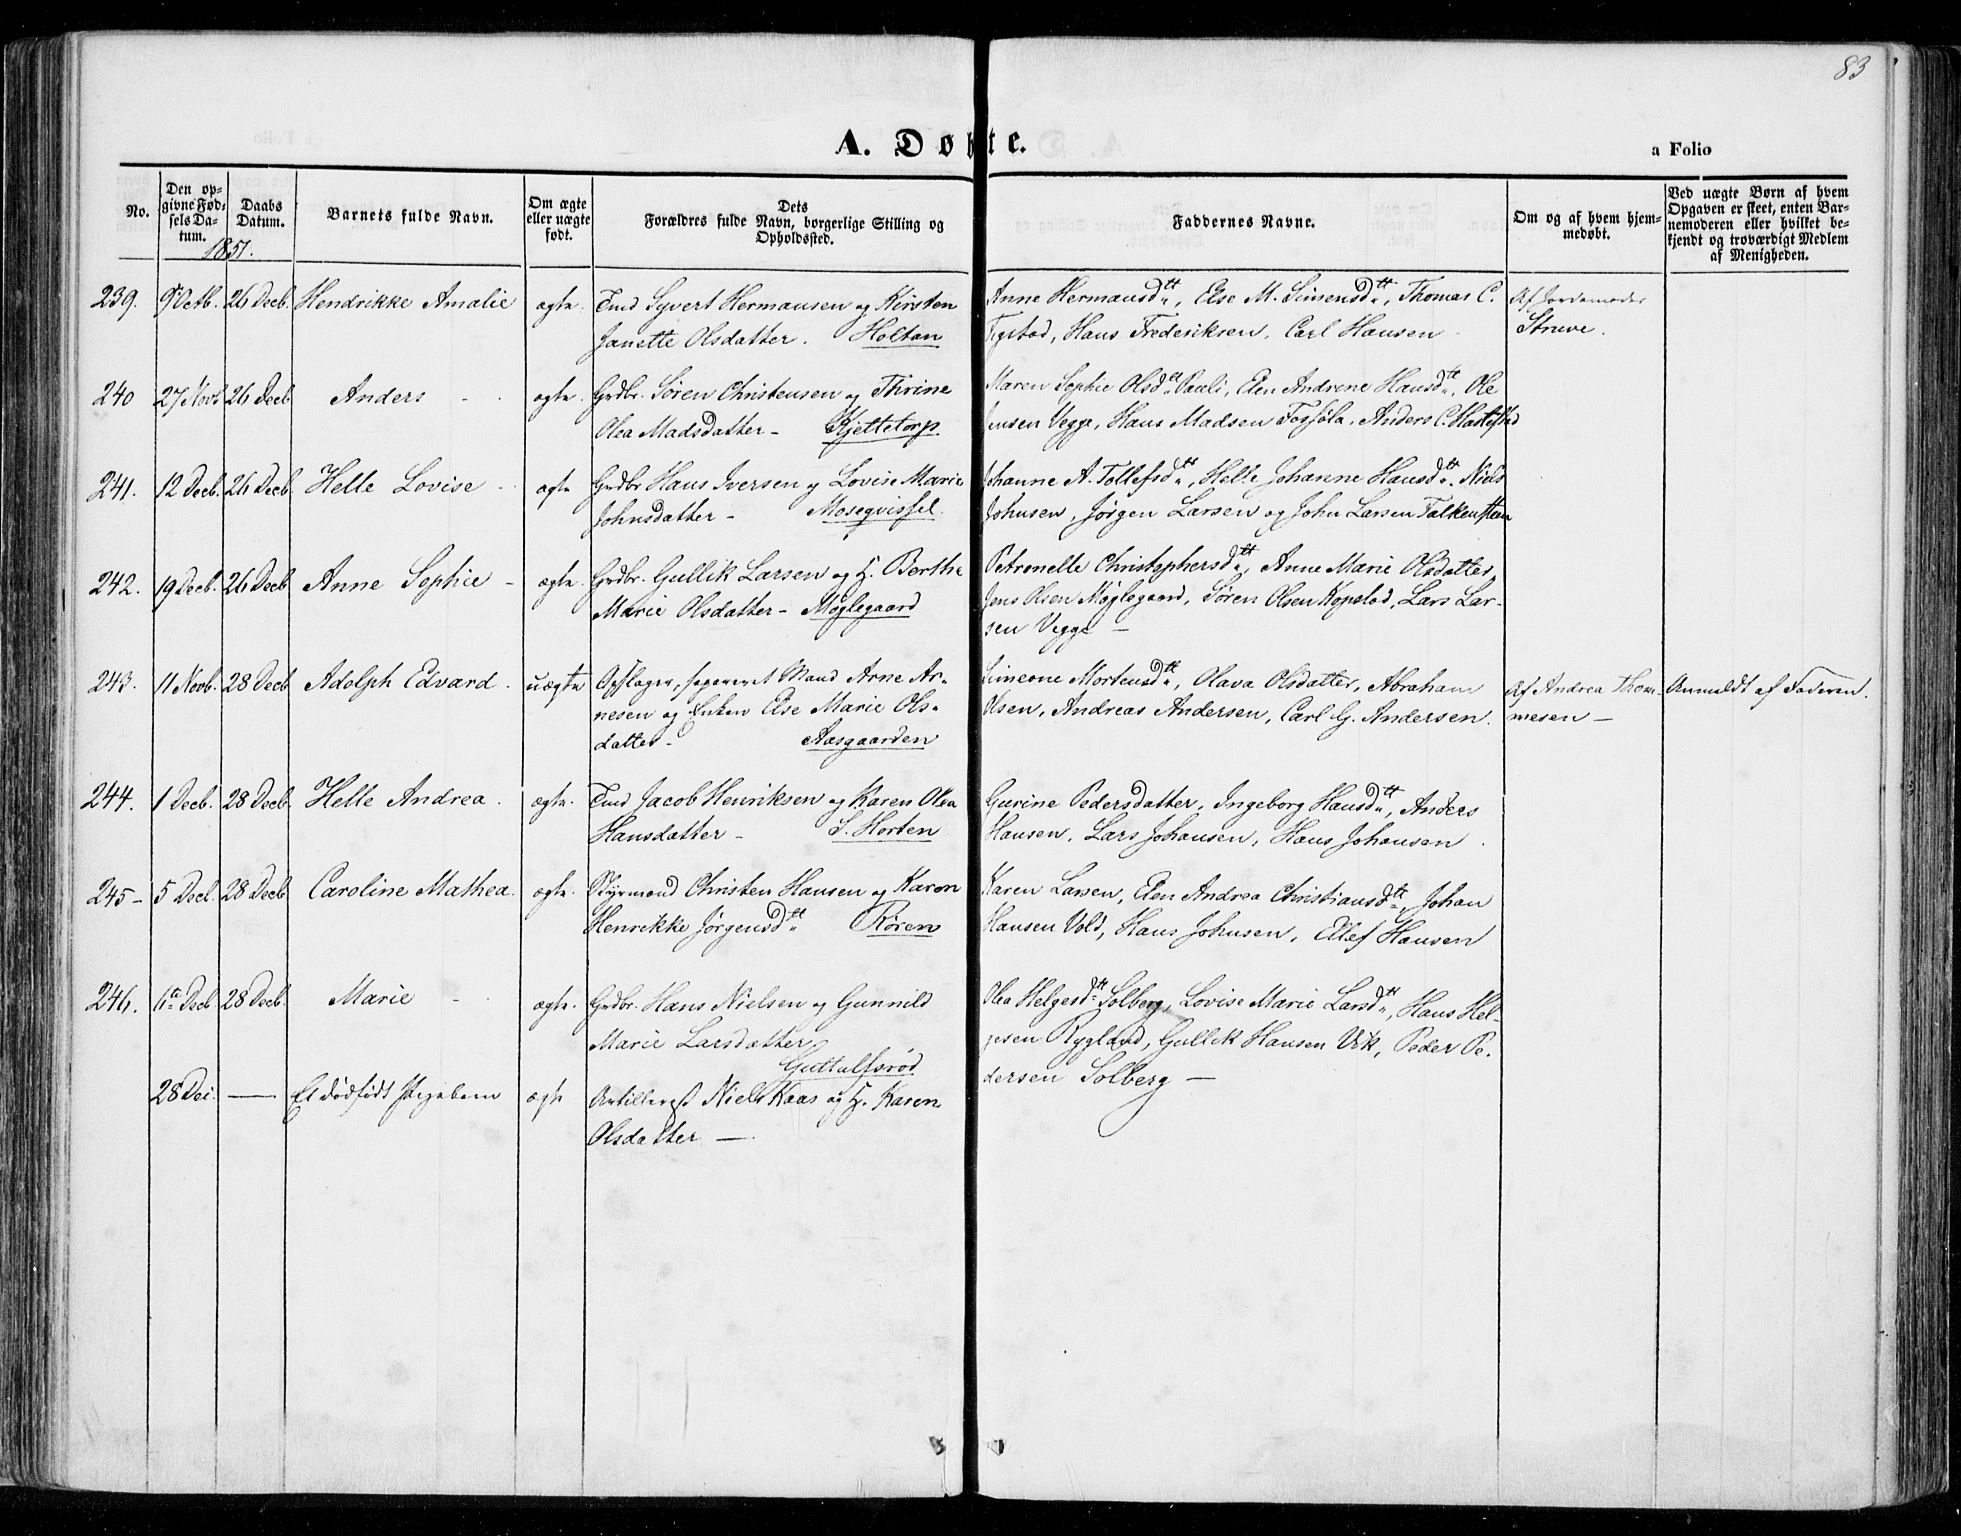 83
A. Døbte.
a Folio
No.
Den op-
givne Fød-
sels Da-
tum.
Daabs
Datum.
Barnets fulde Navn.
Om ægte
eller uægte
født.
Dets
Forældres fulde Navn, borgerlige Stilling og
Opholdssted.
Faddernes Navne.
Om og af hvem hjem-
medøbt.
Ved uægte Børn af hvem
Opgaven er skeet, enten Bar-
nemoderen eller hvilket be-
kjendt og troværdigt Medlem
af Menigheden.
1851.
239. 9 Octb. 26 Decb. Hendrikke Amalie ægte. Tmd Syvert Hermansen og Kirsten Anne Hermansdtr, Else M. Simensdtr, Thomas C. Af Jordemoder
Janette Olsdatter. Holtan Fegstad, Hans Frederiksen, Carl Hansen Struve.
240 27 Novb 26 Decb Anders - ægte. Grdbr. Søren Christensen og Thrine Maren Sophie Olsdtr Pauli, Elen Andrine Hansdtr, Ole
Olea Madsdatter - Kjettetorp. Jensen Vegge, Hans Madsen, Anders C.
241. 12 Decb. 26 Decb Helle Lovise - ægte Grdbr Hans Iversen og Lovise Marie Johanne A. Tollefsdtr, Helle Johanne Hansdtr. Niels
Johnsdatter - Moseqvissel. Johnsen, Jørgen Larsen og John Larsen Falkensten
242. 19 Decb. 26 Decb Anne Sophie - ægte. Grdbr. Gullik Larsen og H. Berthe Petronelle Christophersdtr, Anne Marie Olsdatter,
Marie Olsdatter - Møglegaard Jens Olsen Møglegaard, Søren Olsen Kopstad, Lars Lar-
sen Vegge -
243. 11 Novb. 28 Decb Adolph Edvard. uægte Opslager, separeret Mand Arne Ar- Simeone Mortensdtr, Olava Olsdatter, Abraham Af Andrea Thom- Anmeldt af Faderen.
nesen og Enken Else Marie Ols- Olsen, Andreas Andersen, Carl G. Andersen. mesen -
datter - Aasgaarden
244. 1 Decb. 28 Decb. Helle Andrea. ægte. Tmd Jacob Henriksen og Karen Olea Gurine Pedersdatter, Ingeborg Hansdtr, Anders
Hansdatter - S. Horten Hansen, Lars Johansen, Hans Johansen.
245 - 5 Decb. 28 Decb Caroline Mathea. ægte. Styrmand Christen Hansen og Karen Karen Larsen, Elen Andrea Christiansdtr, Johan
Henrikke Jørgensdtr Røren Hansen Vold, Hans Johnsen, Ellef Hansen
246. 6te Decb. 28 Decb. Marie - ægte. Grdbr. Hans Nielsen og Gunnild Olea Helgesdtr Solberg, Lovise Marie Larsdtr, Hans Hel-
Marie Larsdatter gesen Rygland, Gullik Hansen Vik, Peder Pe-
Guttulfsrød dersen Solberg -
28 Dec. — Et dødfødt Pigebarn ægte Artillerist Niels Kaas og H. Karen
Olsdatter —